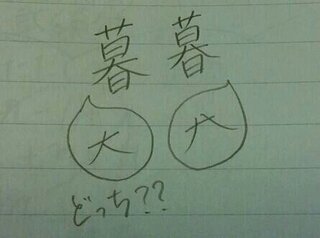 暮暮
大 六
どっち??